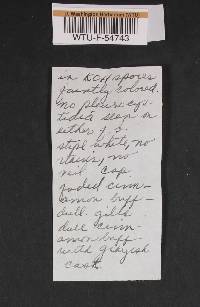 U. Washington Herbarium (WTU)
WTU-F-54743
in KOH spores
faintly colored.
no pleurocys-
tidia seen in
either g. s.
stipe white, no
stains, no
veil. Cap
faded cinn-
amon buff -
dull. gills
dull cinn-
amon buff -
with grayish
cast.